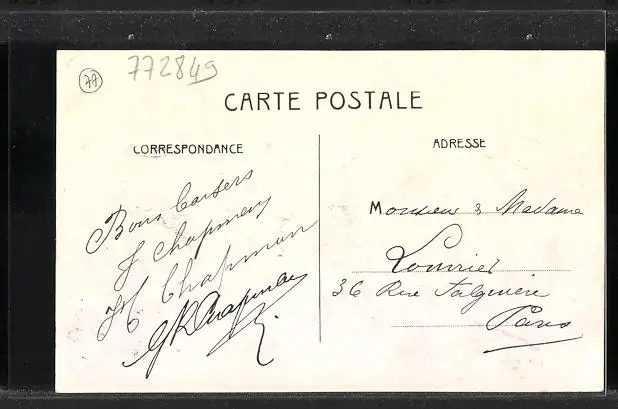 77
772849
CARTE POSTALE
CORRESPONDANCE
Bons baisers
J Chapman
H Chapman
G R Chapman
ADRESSE
Monsieur & Madame
36 Rue Falguière
Paris